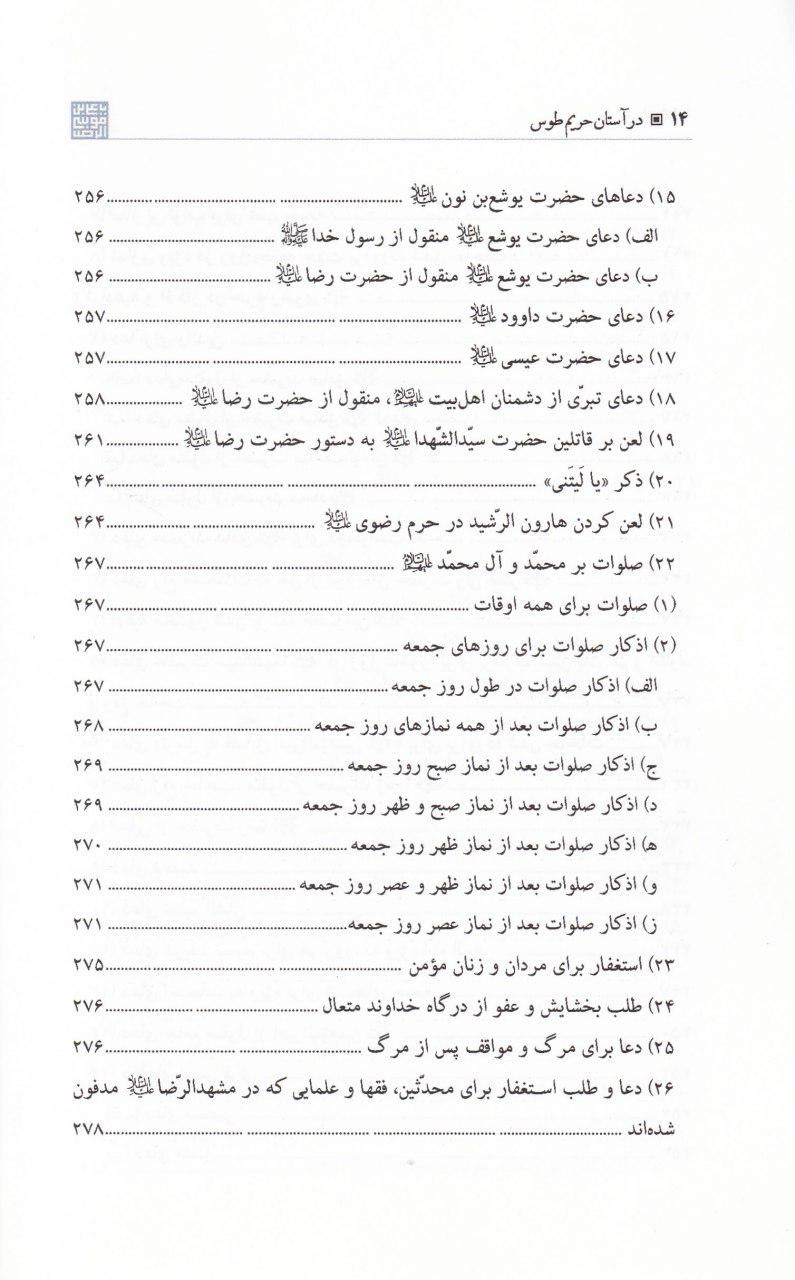 ۱۴ ▣ در آستان حریم طوس
۱۵) دعاهای حضرت یوشع‌بن نون علیه‌السلام ........ ۲۵۶
الف) دعای حضرت یوشع علیه‌السلام منقول از رسول خدا ﷺ ........ ۲۵۶
ب) دعای حضرت یوشع علیه‌السلام منقول از حضرت رضا علیه‌السلام ........ ۲۵۶
۱۶) دعای حضرت داوود علیه‌السلام ........ ۲۵۷
۱۷) دعای حضرت عیسی علیه‌السلام ........ ۲۵۷
۱۸) دعای تبرّی از دشمنان اهل‌بیت علیهم‌السلام، منقول از حضرت رضا علیه‌السلام ........ ۲۵۸
۱۹) لعن بر قاتلین حضرت سیّدالشّهدا علیه‌السلام به دستور حضرت رضا علیه‌السلام ........ ۲۶۱
۲۰) ذکر «یا لَیتَنی» ........ ۲۶۴
۲۱) لعن کردن هارون الرّشید در حرم رضوی علیه‌السلام ........ ۲۶۴
۲۲) صلوات بر محمّد و آل محمّد علیهم‌السلام ........ ۲۶۷
(۱) صلوات برای همه اوقات ........ ۲۶۷
(۲) اذکار صلوات برای روزهای جمعه ........ ۲۶۷
الف) اذکار صلوات در طول روز جمعه ........ ۲۶۷
ب) اذکار صلوات بعد از همه نمازهای روز جمعه ........ ۲۶۸
ج) اذکار صلوات بعد از نماز صبح روز جمعه ........ ۲۶۹
د) اذکار صلوات بعد از نماز صبح و ظهر روز جمعه ........ ۲۶۹
ه) اذکار صلوات بعد از نماز ظهر روز جمعه ........ ۲۷۰
و) اذکار صلوات بعد از نماز ظهر و عصر روز جمعه ........ ۲۷۱
ز) اذکار صلوات بعد از نماز عصر روز جمعه ........ ۲۷۱
۲۳) استغفار برای مردان و زنان مؤمن ........ ۲۷۵
۲۴) طلب بخشایش و عفو از درگاه خداوند متعال ........ ۲۷۶
۲۵) دعا برای مرگ و مواقف پس از مرگ ........ ۲۷۶
۲۶) دعا و طلب استغفار برای محدّثین، فقها و علمایی که در مشهدالرّضا علیه‌السلام مدفون
شده‌اند ........ ۲۷۸